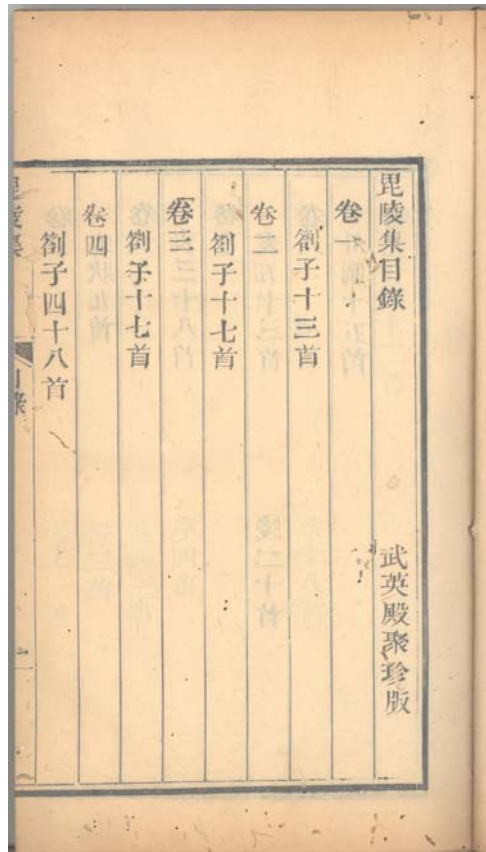 毘陵集目錄
武英殿聚珍版
卷一
劄子十三首
卷二
劄子十七首
卷三
劄子十七首
卷四
劄子四十八首